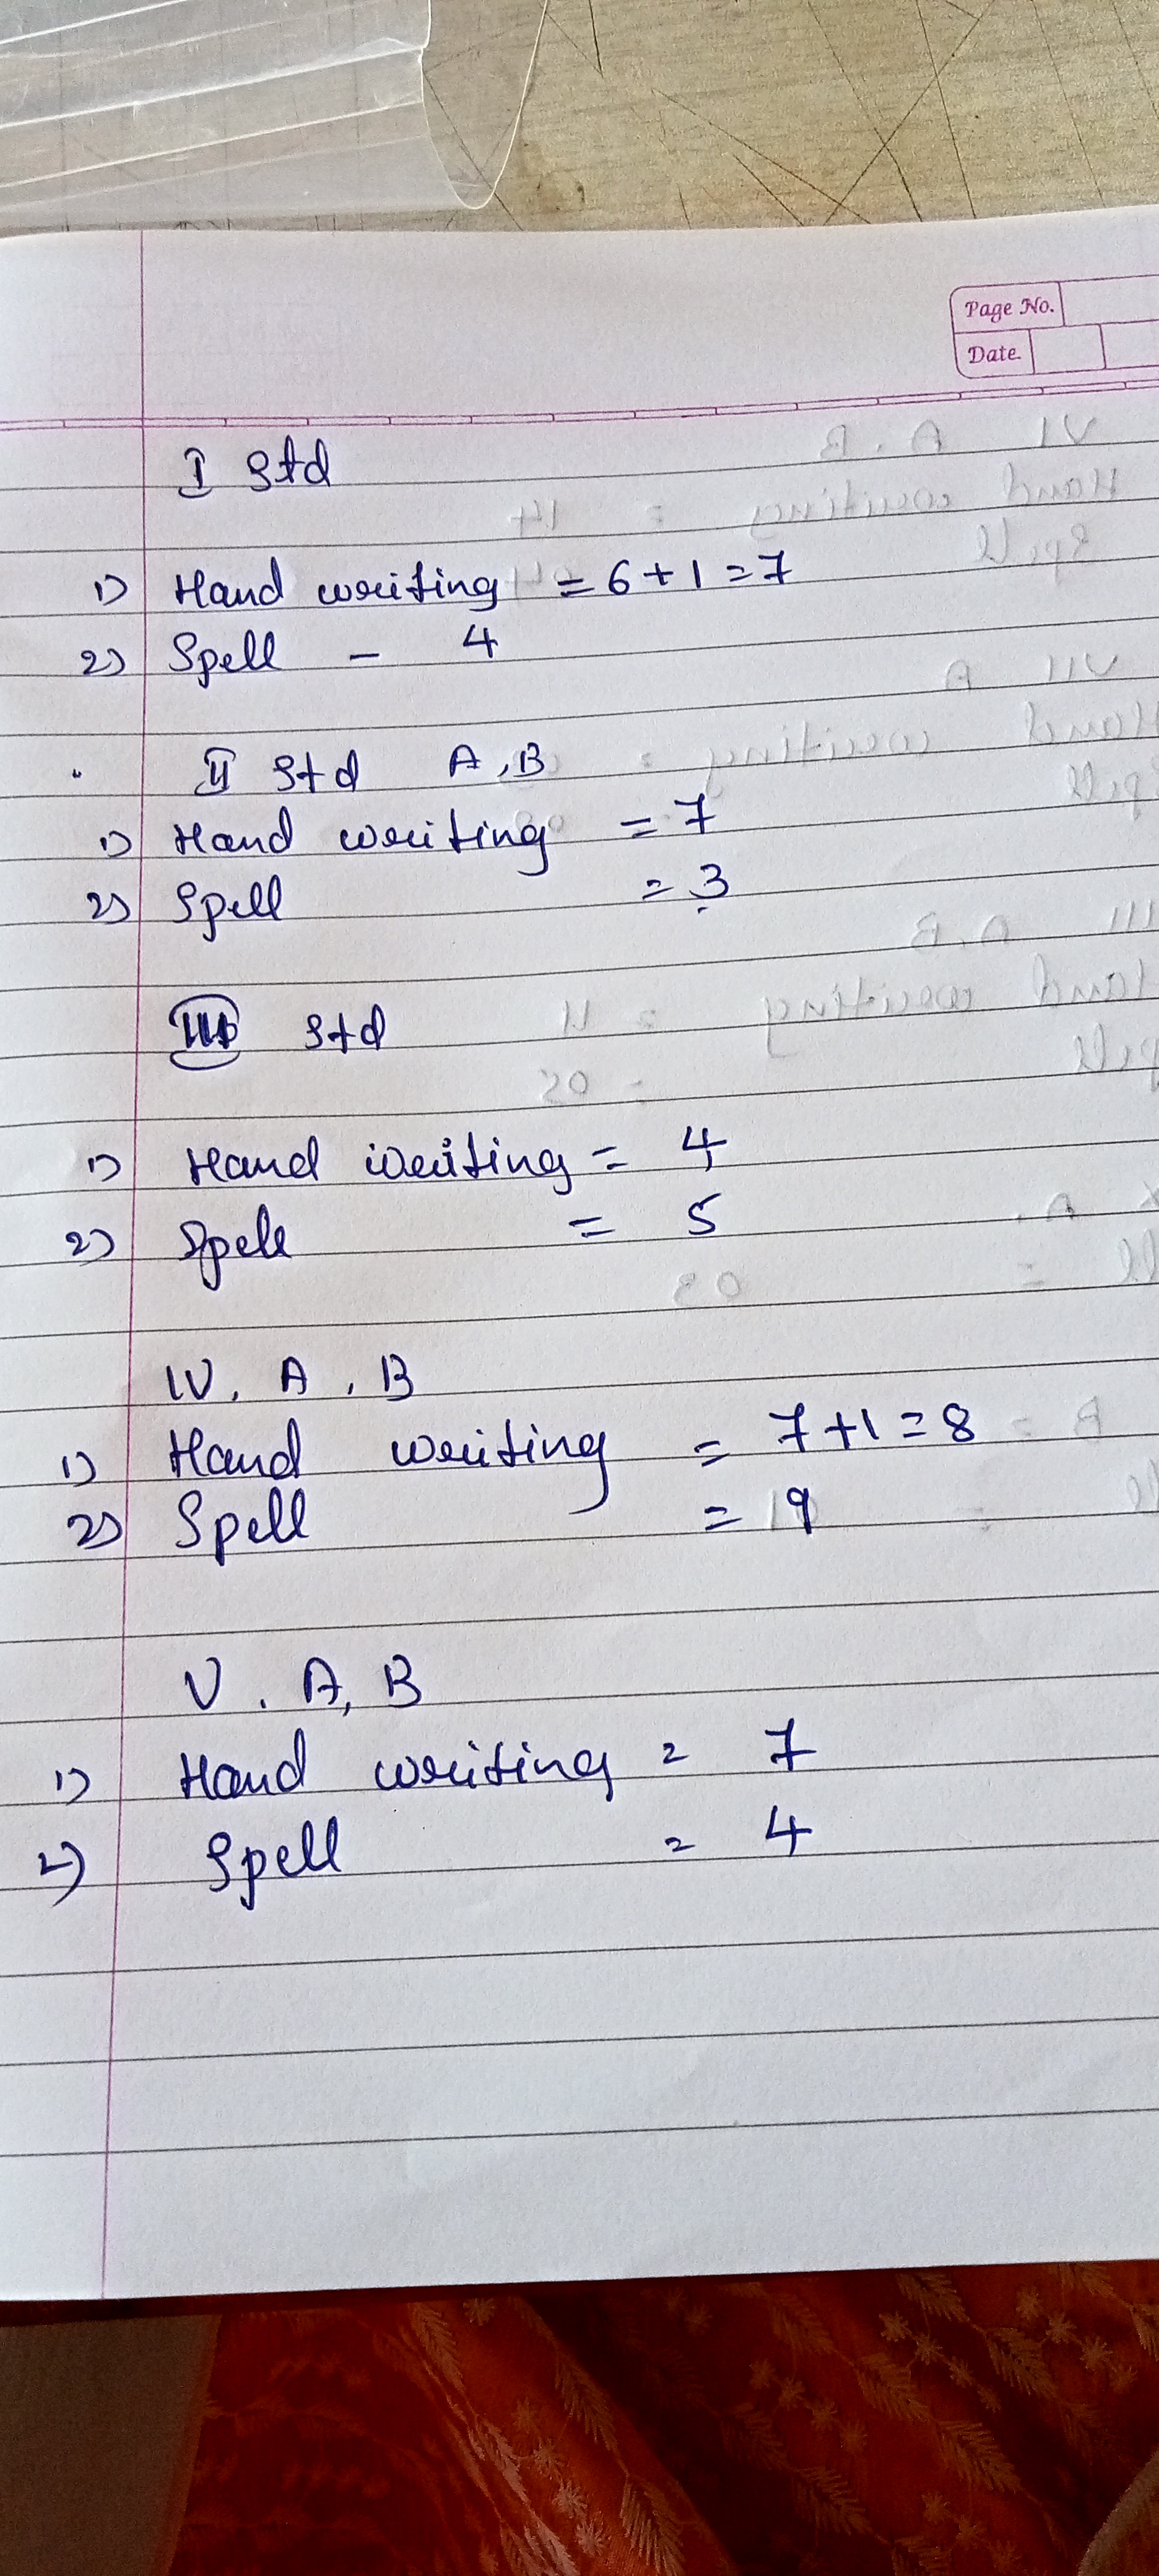 Page No.
Date
I Std
1) Hand writing = 6 + 1 = 7
2) Spell - 4
II Std A, B
1) Hand writing = 7
2) Spell = 3
III Std
1) Hand writing = 4
2) Spell = 5
IV. A, B
1) Hand writing = 7 + 1 = 8
2) Spell = 9
V. A, B
1) Hand writing = 7
2) Spell = 4